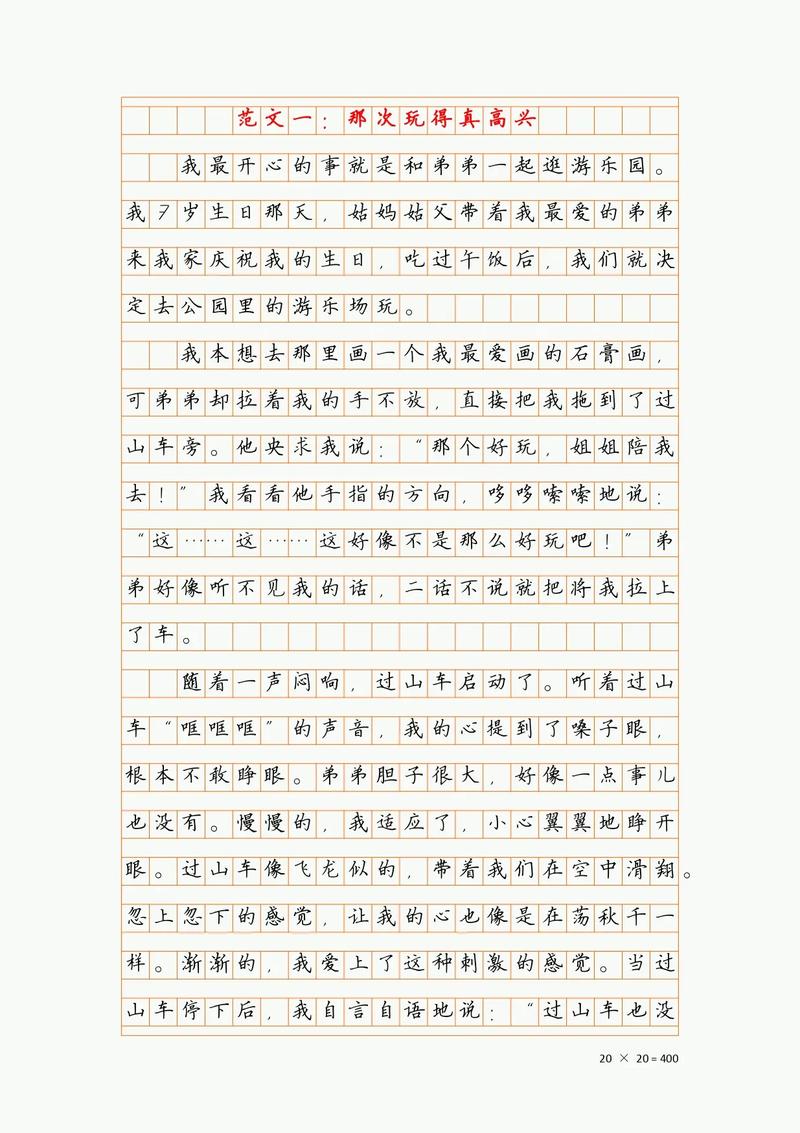 范文一：那次玩得真高兴
我最开心的事就是和弟弟一起逛游乐园。
我7岁生日那天，姑妈姑父带着我最爱的弟弟
来我家庆祝我的生日，吃过午饭后，我们就决
定去公园里的游乐场玩。
我本想去那里画一个我最爱画的石膏画，
可弟弟却拉着我的手不放，直接把我拖到了过
山车旁。他央求我说：“那个好玩，姐姐陪我
去！”我看看他手指的方向，哆哆嗦嗦地说：
“这……这……这好像不是那么好玩吧！”弟
弟好像听不见我的话，二话不说就把将我拉上
了车。
随着一声闷响，过山车启动了。听着过山
车“哐哐哐”的声音，我的心提到了嗓子眼，
根本不敢睁眼。弟弟胆子很大，好像一点事儿
也没有。慢慢的，我适应了，小心翼翼地睁开
眼。过山车像飞龙似的，带着我们在空中滑翔。
忽上忽下的感觉，让我的心也像是在荡秋千一
样。渐渐的，我爱上了这种刺激的感觉。当过
山车停下后，我自言自语地说：“过山车也没
20 × 20=400